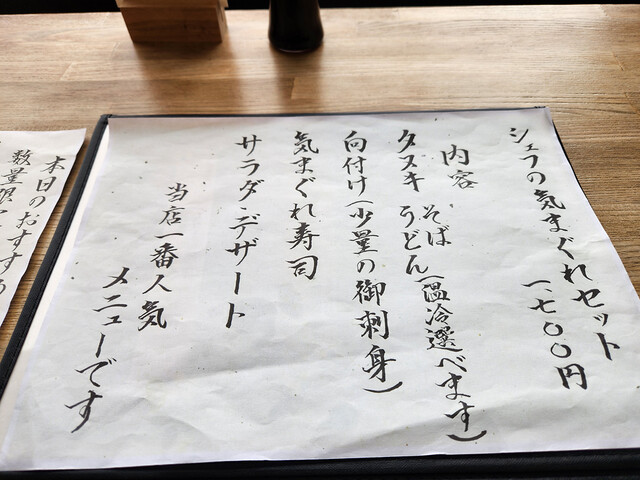 シェフの気まぐれセット
一、七〇〇円
内容
タヌキ そば うどん(温冷選べます)
向付け(少量の御刺身)
気まぐれ寿司
サラダ・デザート
当店一番人気
メニューです
本日のおすすめ
数量限